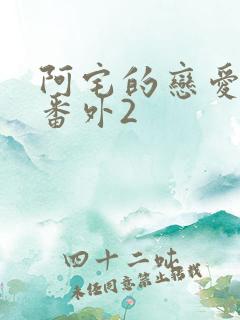 阿宅的戀愛
番外2
四十二吠
未任同意禁止轉載